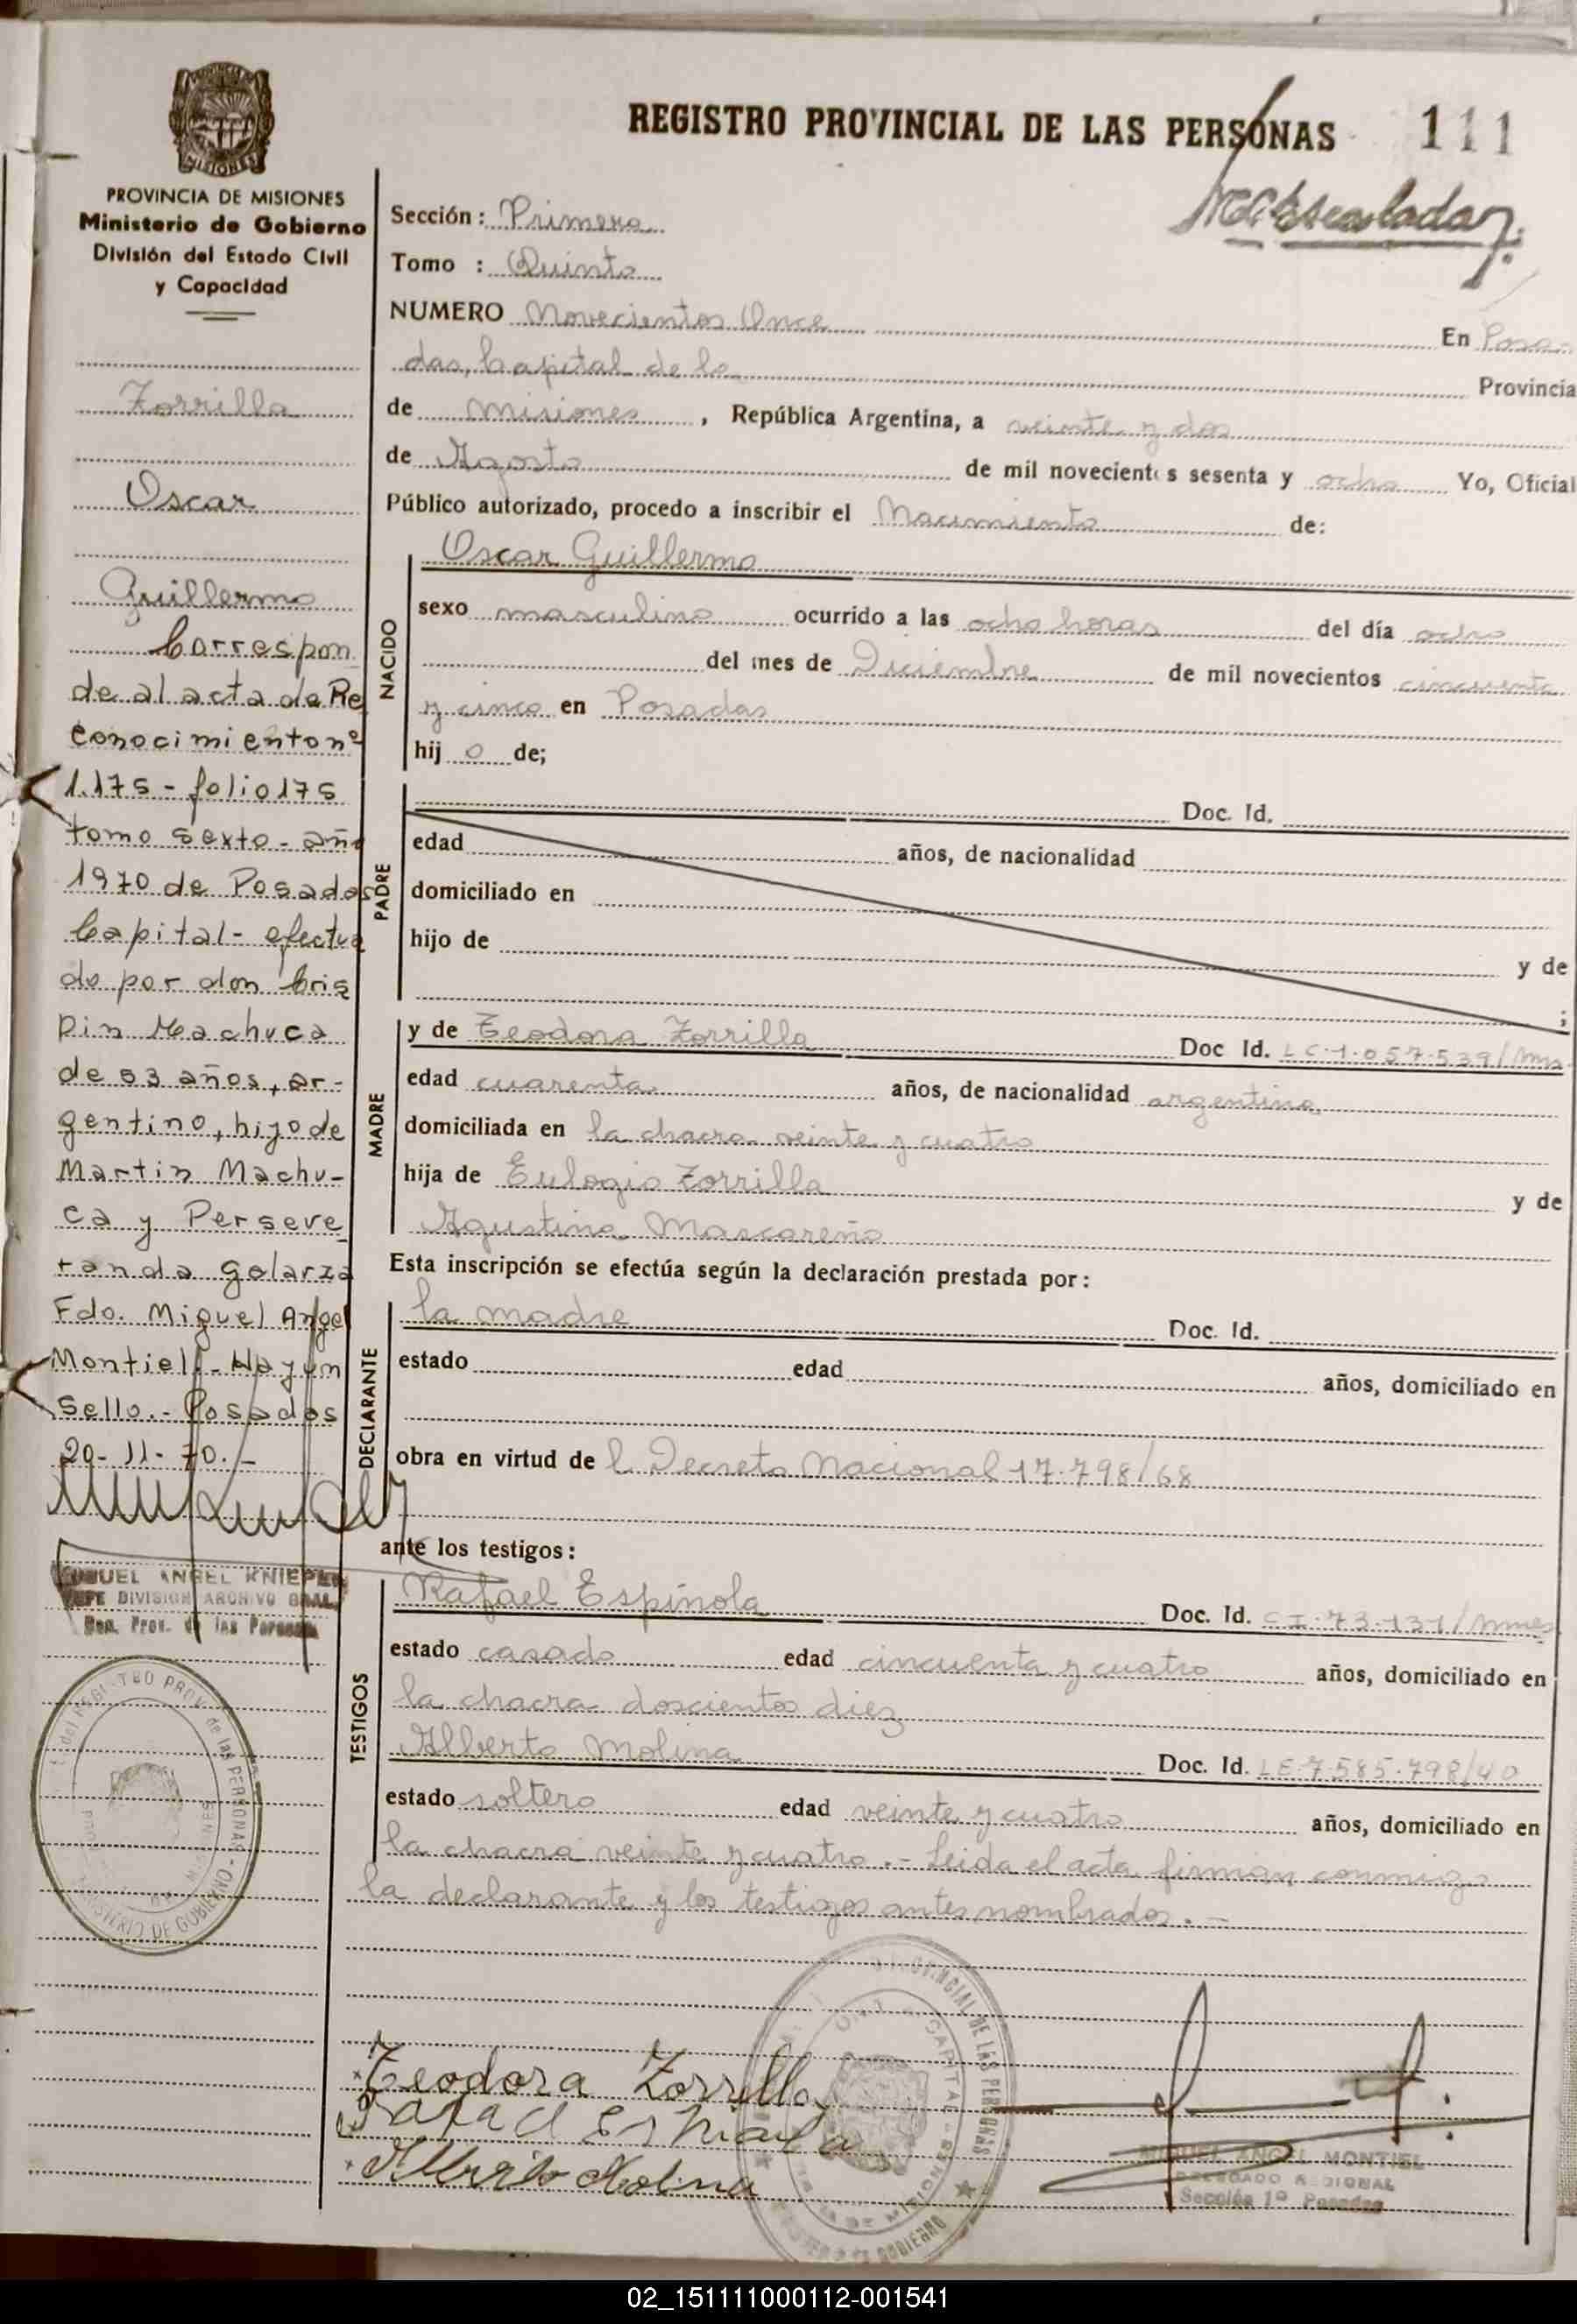 REGISTRO PROVINCIAL DE LAS PERSONAS 111
PROVINCIA DE MISIONES
Ministerio de Gobierno
División del Estado Civil
y Capacidad
Zorrilla
Oscar
Guillermo
Correspon
de al acta de Re
conocimiento nº
1.175 - folio 175
tomo sexto - año
1970 de Posadas
Capital - efectua
do por don Cris
pin Machuca
de 53 años, ar-
gentino, hijo de
Martin Machu-
ca y Perseve
randa Golarza
Fdo. Miguel Angel
Montiel - Hay un
Sello.- Posadas
20-11-70.-
MIGUEL ANGEL KNIEPER
JEFE DIVISION ARCHIVO GRAL.
Reg. Prov. de las Personas
Sección: Primera
Tomo : Quinto
NUMERO Novecientos Once En Posa-
das, Capital de la Provincia
de Misiones, República Argentina, a veinte y dos
de Agosto de mil novecientos sesenta y ocho Yo, Oficial
Público autorizado, procedo a inscribir el Nacimiento de:
NACIDO
Oscar Guillermo
sexo masculino ocurrido a las ocho horas del día ocho
del mes de Diciembre de mil novecientos cincuenta
y cinco en Posadas
hij o de;
PADRE
Doc. Id.
edad años, de nacionalidad
domiciliado en
hijo de y de
;
MADRE
y de Teodora Zorrilla Doc Id. LC.1.057.539/Mns
edad cuarenta años, de nacionalidad argentina
domiciliada en la chacra veinte y cuatro
hija de Eulogio Zorrilla y de
Agustina Mascareño
Esta inscripción se efectúa según la declaración prestada por:
DECLARANTE
la madre Doc. Id.
estado edad años, domiciliado en
obra en virtud de l Decreto Nacional 17.798/68
ante los testigos:
TESTIGOS
Rafael Espínola Doc. Id. CI.73.131/Mnes
estado casado edad cincuenta y cuatro años, domiciliado en
la chacra doscientos diez
Alberto Molina Doc. Id. LE.7.585.798/40
estado soltero edad veinte y cuatro años, domiciliado en
la chacra veinte y cuatro.- Leida el acta firman conmigo
la declarante y los testigos antes nombrados.-
Teodora Zorrilla
Rafael Espinola
Alberto Molina
MIGUEL ANGEL MONTIEL
DELEGADO REGIONAL
Sección 1º Posadas
02_151111000112-001541